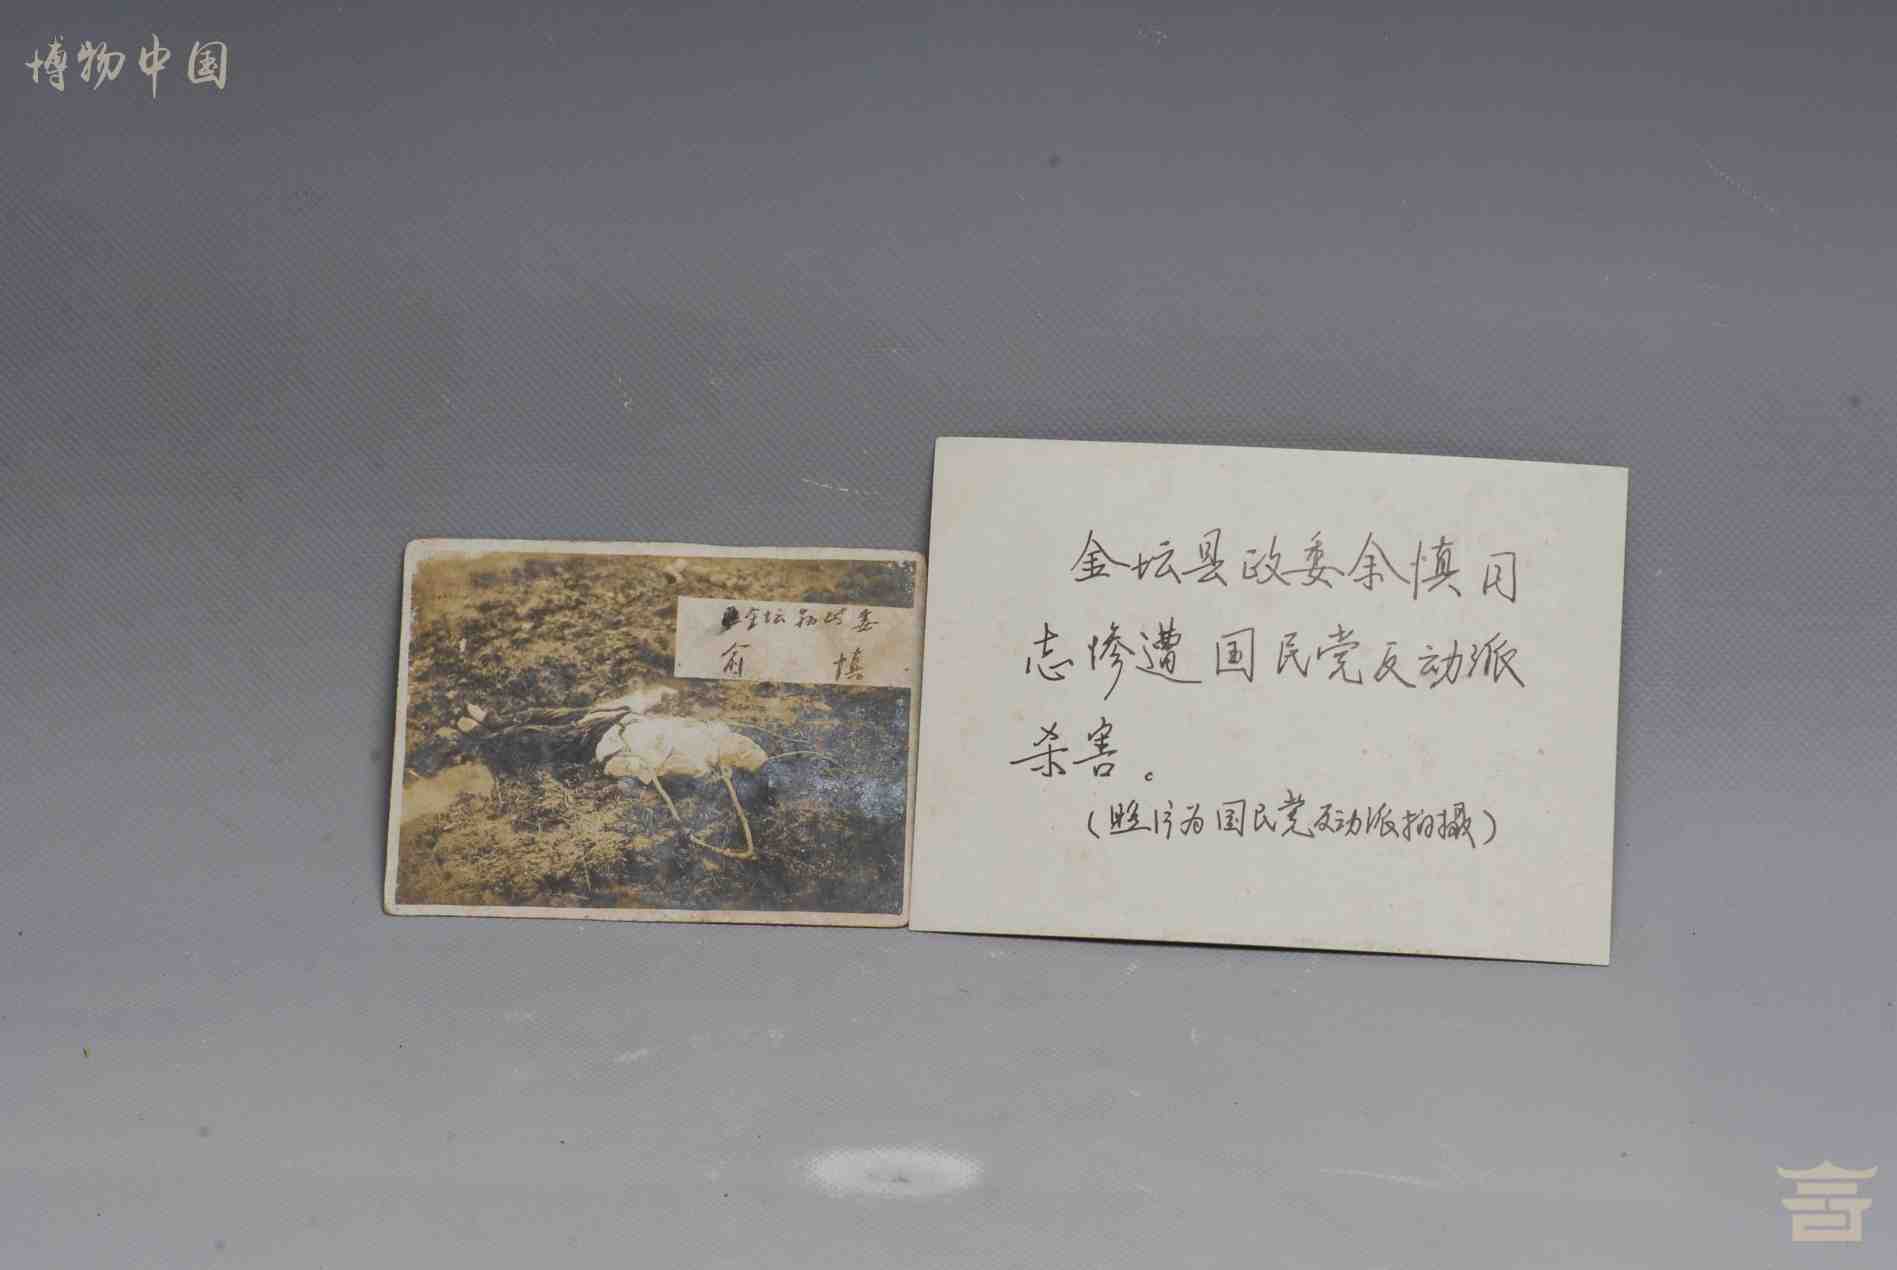 博物中国
金坛县政委
俞 慎
金坛县政委余慎同
志惨遭国民党反动派
杀害。
(照片为国民党反动派拍摄)